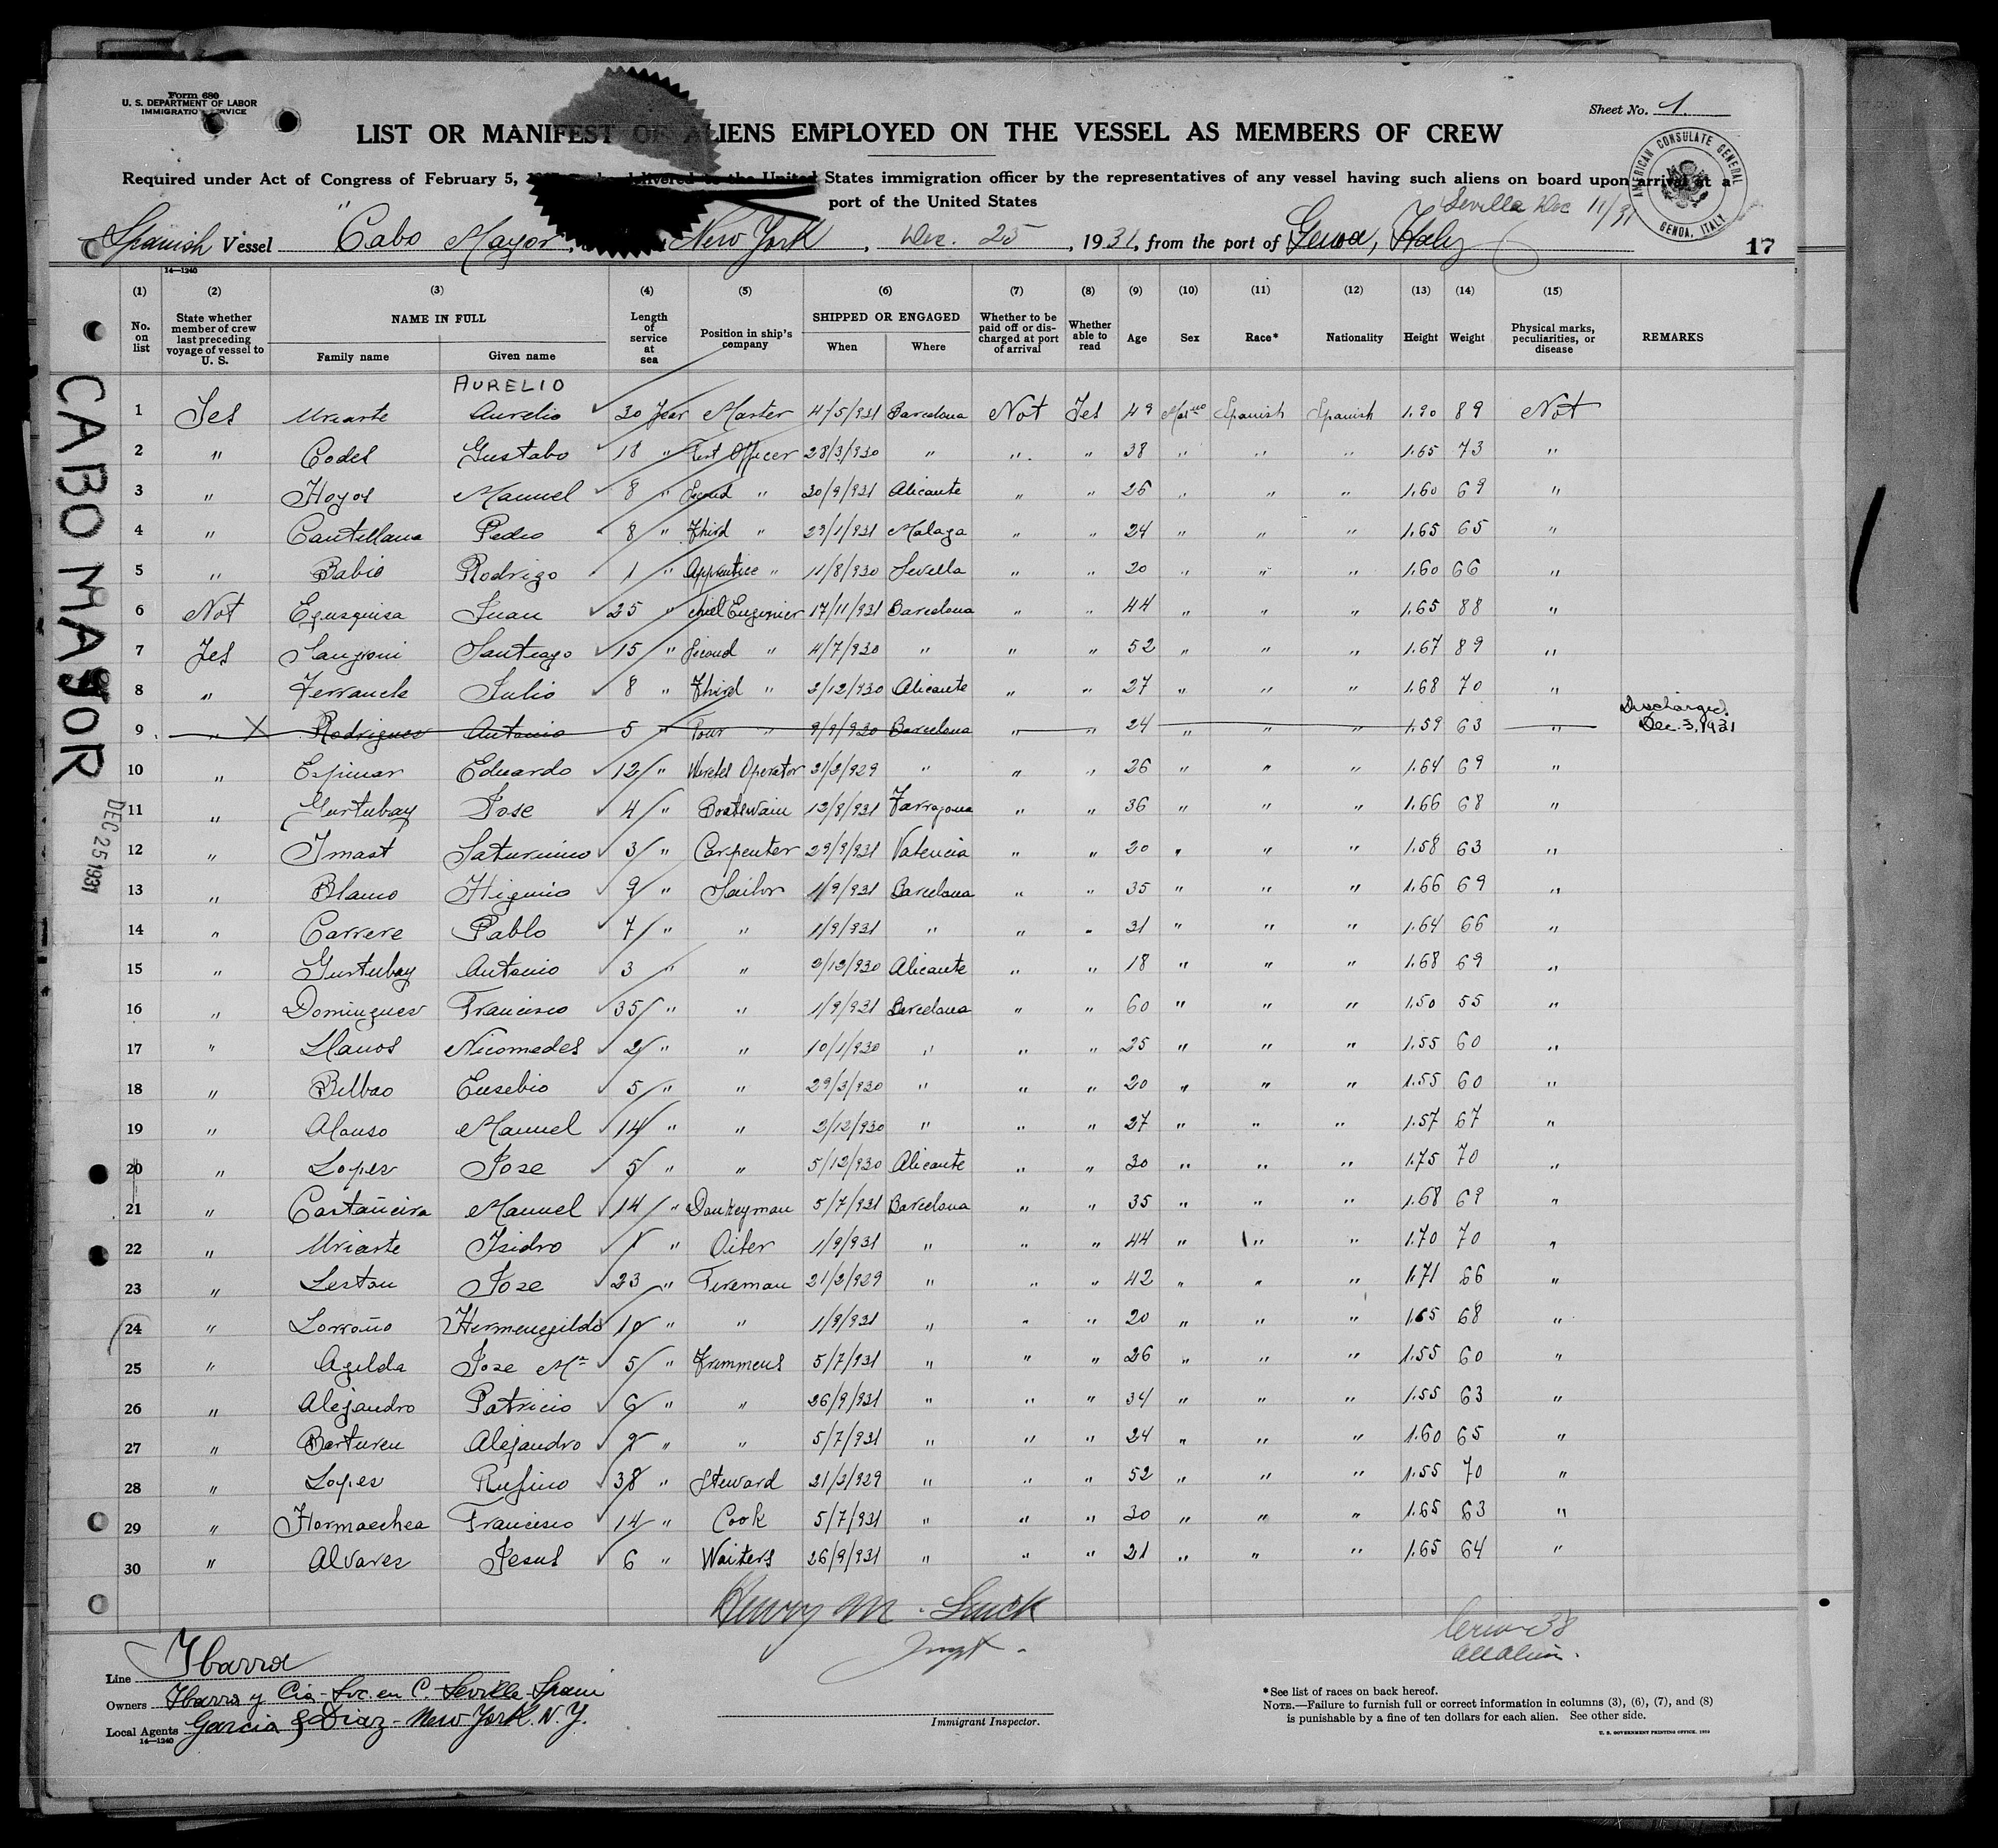 Form 680
U. S. DEPARTMENT OF LABOR
IMMIGRATION SERVICE
Sheet No. 1.
LIST OR MANIFEST OF ALIENS EMPLOYED ON THE VESSEL AS MEMBERS OF CREW
Required under Act of Congress of February 5, delivered to the United States immigration officer by the representatives of any vessel having such aliens on board upon arrival at a
port of the United States
AMERICAN CONSULATE GENERAL GENOA, ITALY
Sevilla Dec 11/31
Spanish Vessel "Cabo Mayor", New York, Dec. 25, 1931, from the port of Genoa, Italy
17
14—1240
(1) (2) (3) (4) (5) (6) (7) (8) (9) (10) (11) (12) (13) (14) (15)
No. on list State whether member of crew last preceding voyage of vessel to U. S. NAME IN FULL Family name Given name Length of service at sea Position in ship's company SHIPPED OR ENGAGED When Where Whether to be paid off or discharged at port of arrival Whether able to read Age Sex Race* Nationality Height Weight Physical marks, peculiarities, or disease REMARKS
CABO MAYOR
DEC 25 1931
AURELIO
1 Yes Uriarte Aurelio 30 Year Master 4/5/931 Barcelona Not Yes 49 Spanish Spanish 1.90 89 Not
2 " Codes Gustabo 18 " First Officer 28/3/930 " " " 38 " " " 1.65 73 "
3 " Hoyos Manuel 8 " Second " 30/9/931 Alicante " " 26 " " " 1.60 69 "
4 " Cantellana Pedro 8 " Third " 29/1/931 Malaga " " 24 " " " 1.65 65 "
5 " Babio Rodrigo 1 " Apprentice " 11/8/930 Sevella " " 20 " " " 1.60 66 "
6 Not Egusquisa Juan 25 " chief Euginier 17/11/931 Barcelona " " 44 " " " 1.65 88 "
7 Yes Sangroni Santiago 15 " Second " 4/7/930 " " " 52 " " " 1.67 89 "
8 " Ferrandis Julio 8 " Third " 2/12/930 Alicante " " 27 " " " 1.68 70 "
9 " X Rodrigues Antonio 5 " Four " 9/9/930 Barcelona " " 24 " " " 1.59 63 " Discharged Dec. 3, 1931
10 " Espinar Eduardo 12 " Wireles Operator 21/2/929 " " " 26 " " " 1.64 69 "
11 " Gurtubay Jose 4 " Boatswain 12/8/931 Tarragona " " 36 " " " 1.66 68 "
12 " Ymast Saturnino 3 " Carpenter 29/9/931 Valencia " " 20 " " " 1.58 63 "
13 " Blanco Higinio 9 " Sailor 1/9/931 Barcelona " " 35 " " " 1.66 69 "
14 " Carrere Pablo 7 " " 1/9/931 " " " 31 " " " 1.64 66 "
15 " Gurtubay Antonio 3 " " 2/12/930 Alicante " " 18 " " " 1.68 69 "
16 " Domingues Francisco 35 " " 1/9/931 Barcelona " " 60 " " " 1.50 55 "
17 " Llanos Nicomedes 2 " " 10/1/930 " " " 25 " " " 1.55 60 "
18 " Bilbao Eusebio 5 " " 29/3/930 " " " 20 " " " 1.55 60 "
19 " Alonso Manuel 14 " " 2/12/930 " " " 27 " " " 1.57 67 "
20 " Lopes Jose 5 " " 5/12/930 Alicante " " 30 " " " 1.75 70 "
21 " Castañeira Manuel 14 " Donkeyman 5/7/931 Barcelona " " 35 " " " 1.68 69 "
22 " Uriarte Isidro 1 " Oiler 1/9/931 " " " 44 " " " 1.70 70 "
23 " Leston Jose 23 " Fireman 21/2/929 " " " 42 " " " 1.71 66 "
24 " Lorroño Hermenegildo 10 " " 1/9/931 " " " 20 " " " 1.65 68 "
25 " Agilda Jose Mª 5 " Trimmens 5/7/931 " " " 26 " " " 1.55 60 "
26 " Alejandro Patricio 6 " " 26/9/931 " " " 34 " " " 1.55 63 "
27 " Barturen Alejandro 9 " " 5/7/931 " " " 24 " " " 1.60 65 "
28 " Lopes Rufino 38 " Steward 21/2/929 " " " 52 " " " 1.55 70 "
29 " Hormaechea Francisco 14 " Cook 5/7/931 " " " 30 " " " 1.65 63 "
30 " Alvares Jesus 6 " Waiters 26/9/931 " " " 21 " " " 1.65 64 "
Henry M.
Inspt.
Crew 38
all alien.
Line Ibarra
Owners Ibarra y Cia - Soc. en C. Seville - Spain
Local Agents Garcia & Diaz - New York. N. Y.
14—1240
Immigrant Inspector.
*See list of races on back hereof.
NOTE.—Failure to furnish full or correct information in columns (3), (6), (7), and (8)
is punishable by a fine of ten dollars for each alien. See other side.
U. S. GOVERNMENT PRINTING OFFICE.